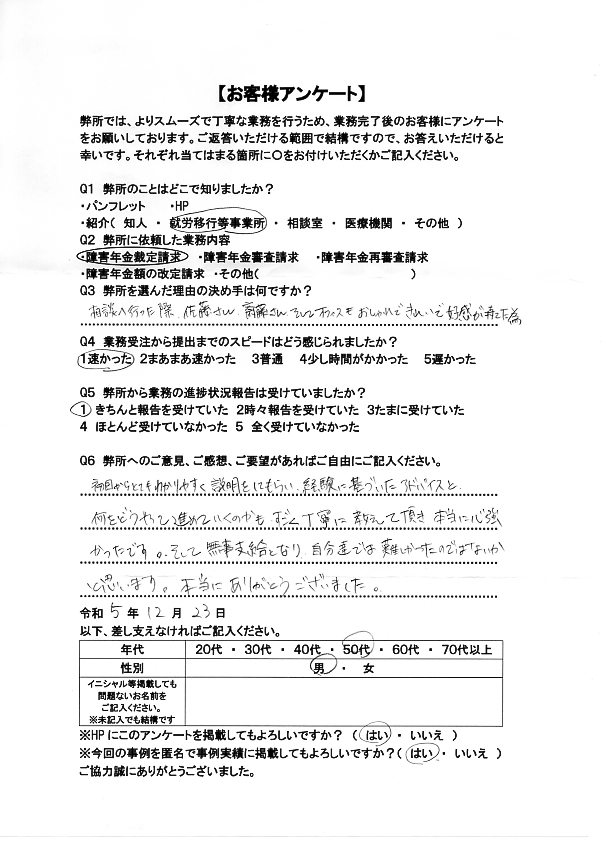 【お客様アンケート】
弊所では、よりスムーズで丁寧な業務を行うため、業務完了後のお客様にアンケート
をお願いしております。ご返答いただける範囲で結構ですので、お答えいただけると
幸いです。それぞれ当てはまる箇所に〇をお付けいただくかご記入ください。
Q1 弊所のことはどこで知りましたか？
・パンフレット ・HP
・紹介（ 知人 ・ 就労移行等事業所 ・ 相談室 ・ 医療機関 ・ その他 ）
Q2 弊所に依頼した業務内容
・障害年金裁定請求 ・障害年金審査請求 ・障害年金再審査請求
・障害年金額の改定請求 ・その他（ ）
Q3 弊所を選んだ理由の決め手は何ですか？
相談へ行った際、佐藤さん、斎藤さん、そしてオフィスもおしゃれできれいで好感が持てた為
Q4 業務受注から提出までのスピードはどう感じられましたか？
1速かった 2まあまあ速かった 3普通 4少し時間がかかった 5遅かった
Q5 弊所から業務の進捗状況報告は受けていましたか？
1 きちんと報告を受けていた 2時々報告を受けていた 3たまに受けていた
4 ほとんど受けていなかった 5 全く受けていなかった
Q6 弊所へのご意見、ご感想、ご要望があればご自由にご記入ください。
初回からとてもわかりやすく説明をしてもらい、経験に基づいたアドバイスと、
何をどうやって進めていくのかもすごく丁寧に教えて頂き本当に心強
かったです。そして無事支給となり、自分達では難しかったのではないか
と思います。本当にありがとうございました。
令和 5 年 12 月 23 日
以下、差し支えなければご記入ください。
年代 20代 ・ 30代 ・ 40代 ・ 50代 ・ 60代 ・ 70代以上
性別 男 ・ 女
イニシャル等掲載しても
問題ないお名前を
ご記入ください。
※未記入でも結構です
※HPにこのアンケートを掲載してもよろしいですか？ （ はい ・ いいえ ）
※今回の事例を匿名で事例実績に掲載してもよろしいですか？（ はい ・ いいえ ）
ご協力誠にありがとうございました。